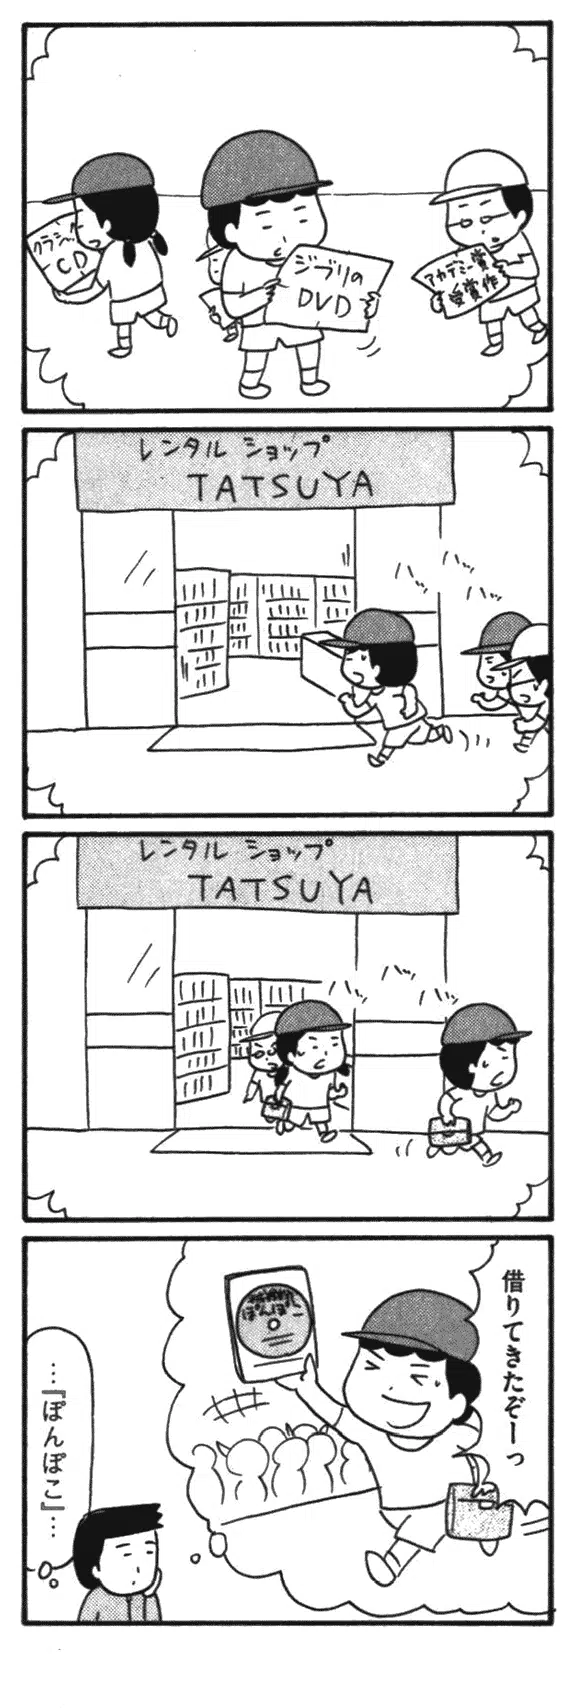 クラシック
CD
ジブリの
DVD
アカデミー賞
受賞作
レンタル ショップ
TATSUYA
ハッ
ハッ
ハッ
レンタル ショップ
TATSUYA
ハッ
ハッ
ハッ
借りてきたぞーっ
ぽんぽこ
…『ぽんぽこ』…